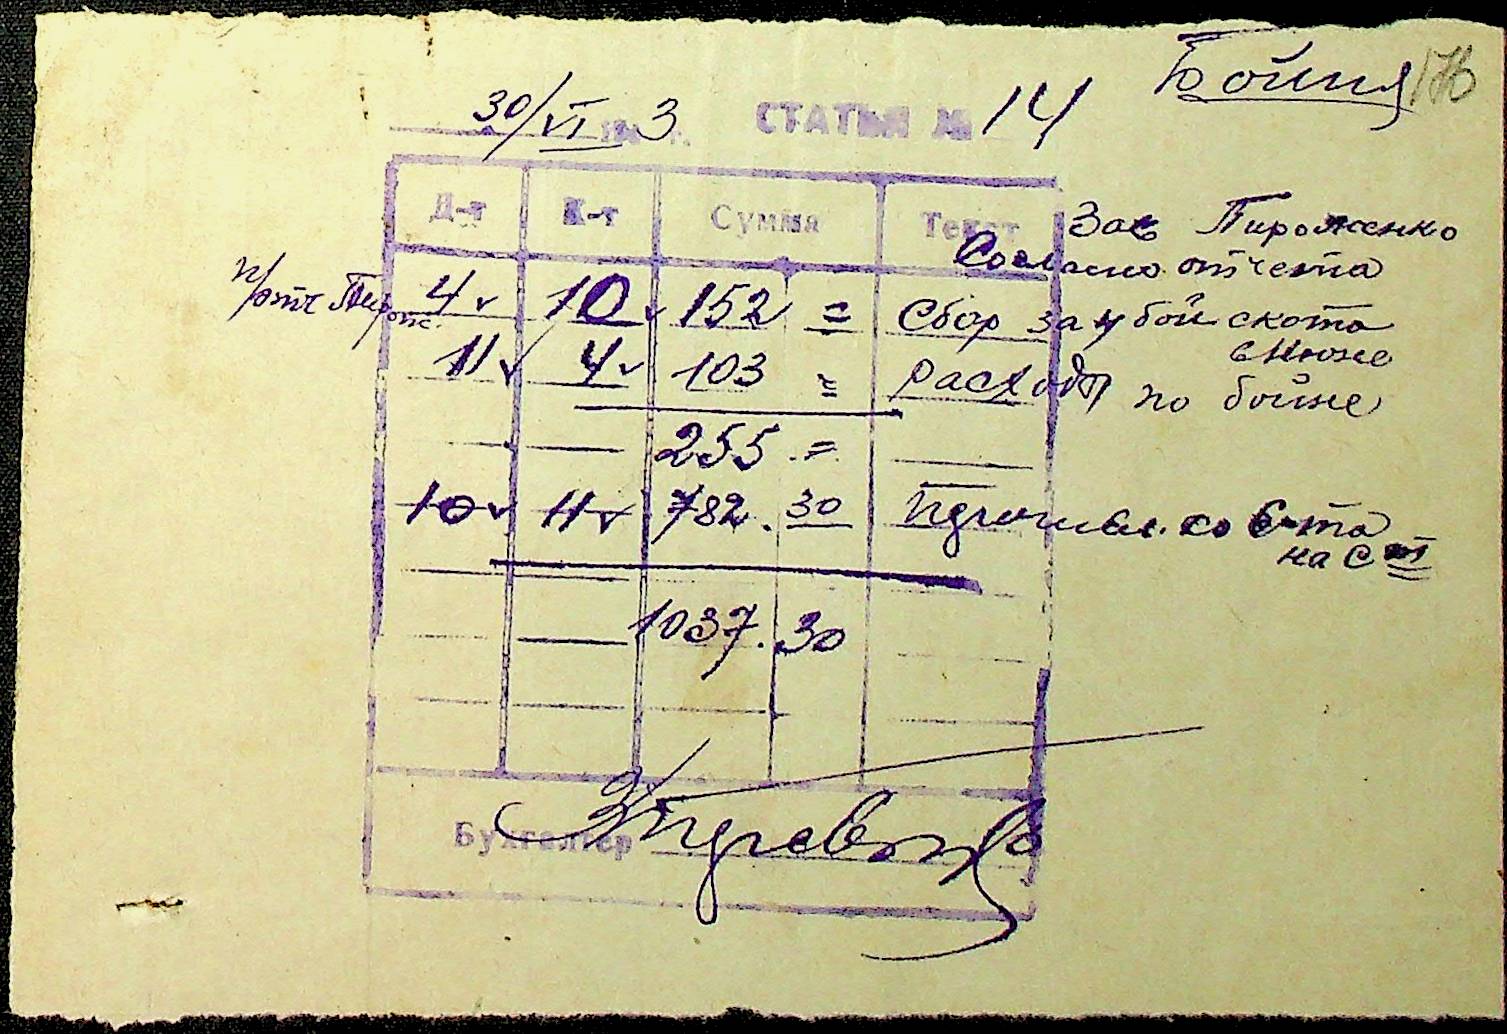 Бойня 176
30/VI 1943 г. СТАТЬЯ № 14
Д-т К-т Сумма Текст Зав Пироженко
Согласно отчета
п/отч Пирож. 4 10 152 = Сбор за убой скота
в Июне
11 4 103 = расход по бойне
255 =
10 11 782.30 на с III
1037.30
Бухгалтер